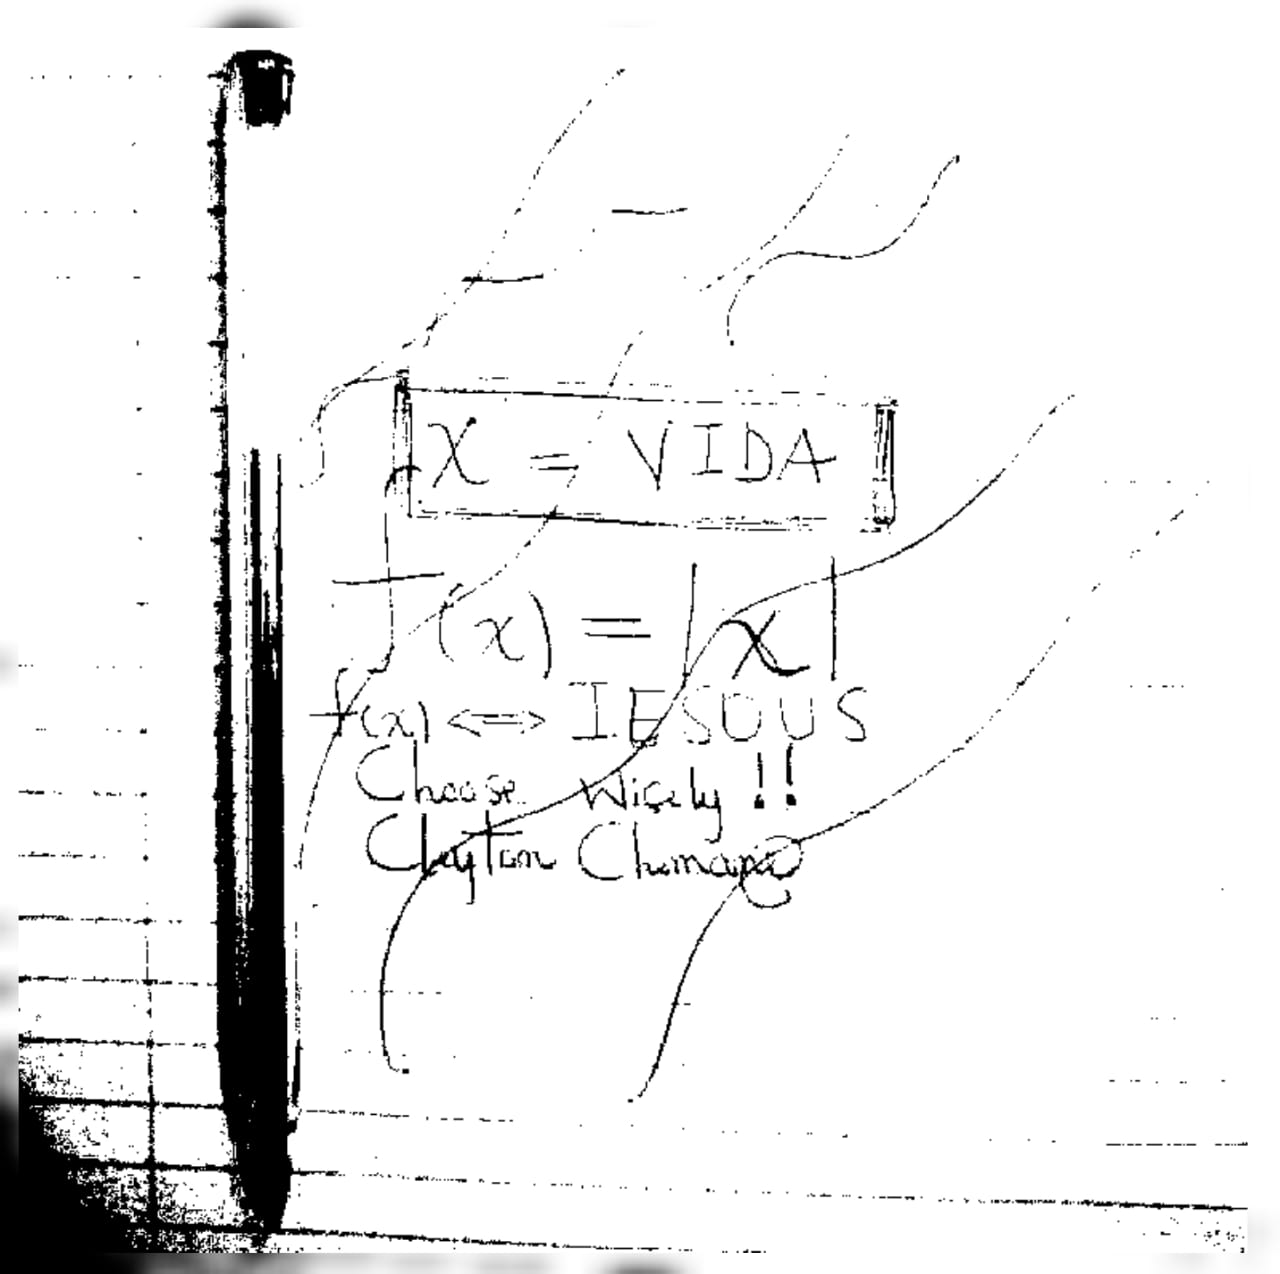 X = VIDA
f(x) = |x|
f(x) ⟺ IESOUS
Choose Wisely !!
Clayton